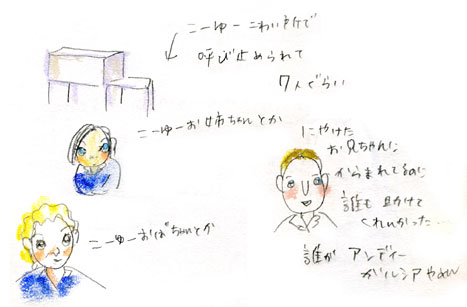 こーゆーこわい所で
呼び止められて
7人ぐらい
こーゆーお姉ちゃんとか
にやけた
お兄ちゃんに
からまれてるのに
誰も助けて
くれなかった…
こーゆーおばちゃんとか
誰が アンディー
ガルシアやねん